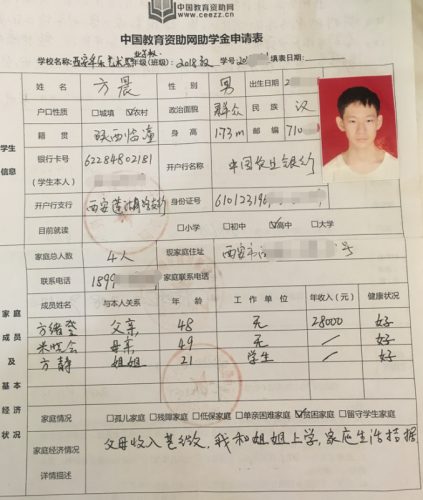 中国教育资助网
www.ceezz.cn
中国教育资助网助学金申请表
学校名称: 年级(班级): 2018级 学号: 填表日期:
姓 名 方晨 性 别 男 出生日期
户口性质 □城镇 ☑农村 政治面貌 群众 民 族 汉
学生信息
籍 贯 陕西临潼 身 高 1.73m 邮 编 710
银行卡号(学生本人) 62284802181 开户行名称 中国农业银行
开户行支行 西安莲湖 身份证号 610123196
目前就读 □小学 □初中 ☑高中 □大学
家庭总人数 4人 现家庭住址 西安市 号
联系电话 1899 家庭联系电话
家庭成员及基本经济状况
成员姓名 与本人关系 年 龄 工 作 单 位 年收入(元) 健康状况
方 父亲 48 无 28000 好
米 母亲 49 无 / 好
方静 姐姐 21 学生 / 好
家庭情况 □孤儿家庭 □残障家庭 □低保家庭 □单亲困难家庭 ☑贫困家庭 □留守学生家庭
家庭经济情况详情描述 父母收入甚微,我和姐姐上学,家庭生活拮据